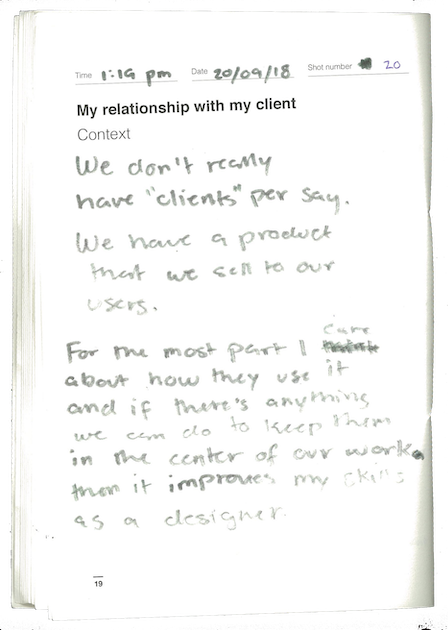 Time 1:19 pm Date 20/09/18 Shot number 20
My relationship with my client
Context
We don't really
have "clients" per say.
We have a product
that we sell to our
users.
For the most part I care
about how they use it
and if there's anything
we can do to keep them
in the center of our work,
then it improves my skills
as a designer.
19